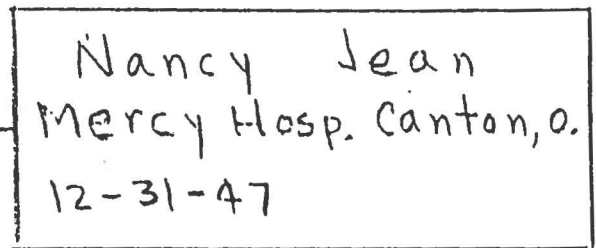 Nancy Jean
Mercy Hosp. Canton, O.
12-31-47